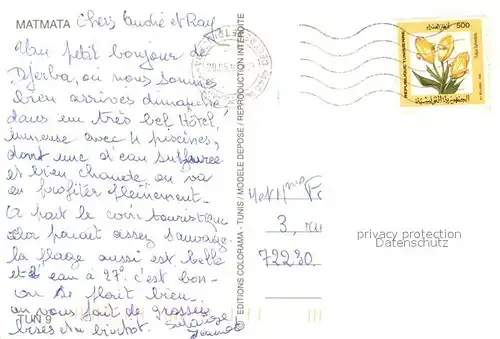 MATMATA Chers André et Ray
Un petit bonjour de
Djerba, où nous sommes
bien arrivés dimanche
dans un très bel Hôtel,
immense avec 4 piscines,
dont une d'eau sulfurée
et bien chaude on va
en profiter pleinement.
A part le coin touristique
paraît assez sauvage
la plage aussi est belle
et l'eau à 27° c'est bon-
on se plaît bien.
on vous fait de grosses
bises et un bientôt. Solange
TUN 9
EDITIONS COLORAMA - TUNIS / MODELE DEPOSE / REPRODUCTION INTERDITE
REPUBLIQUE TUNISIENNE
500
الجمهورية التونسية
Met Mme
3, ru
72230.
privacy protection
Datenschutz